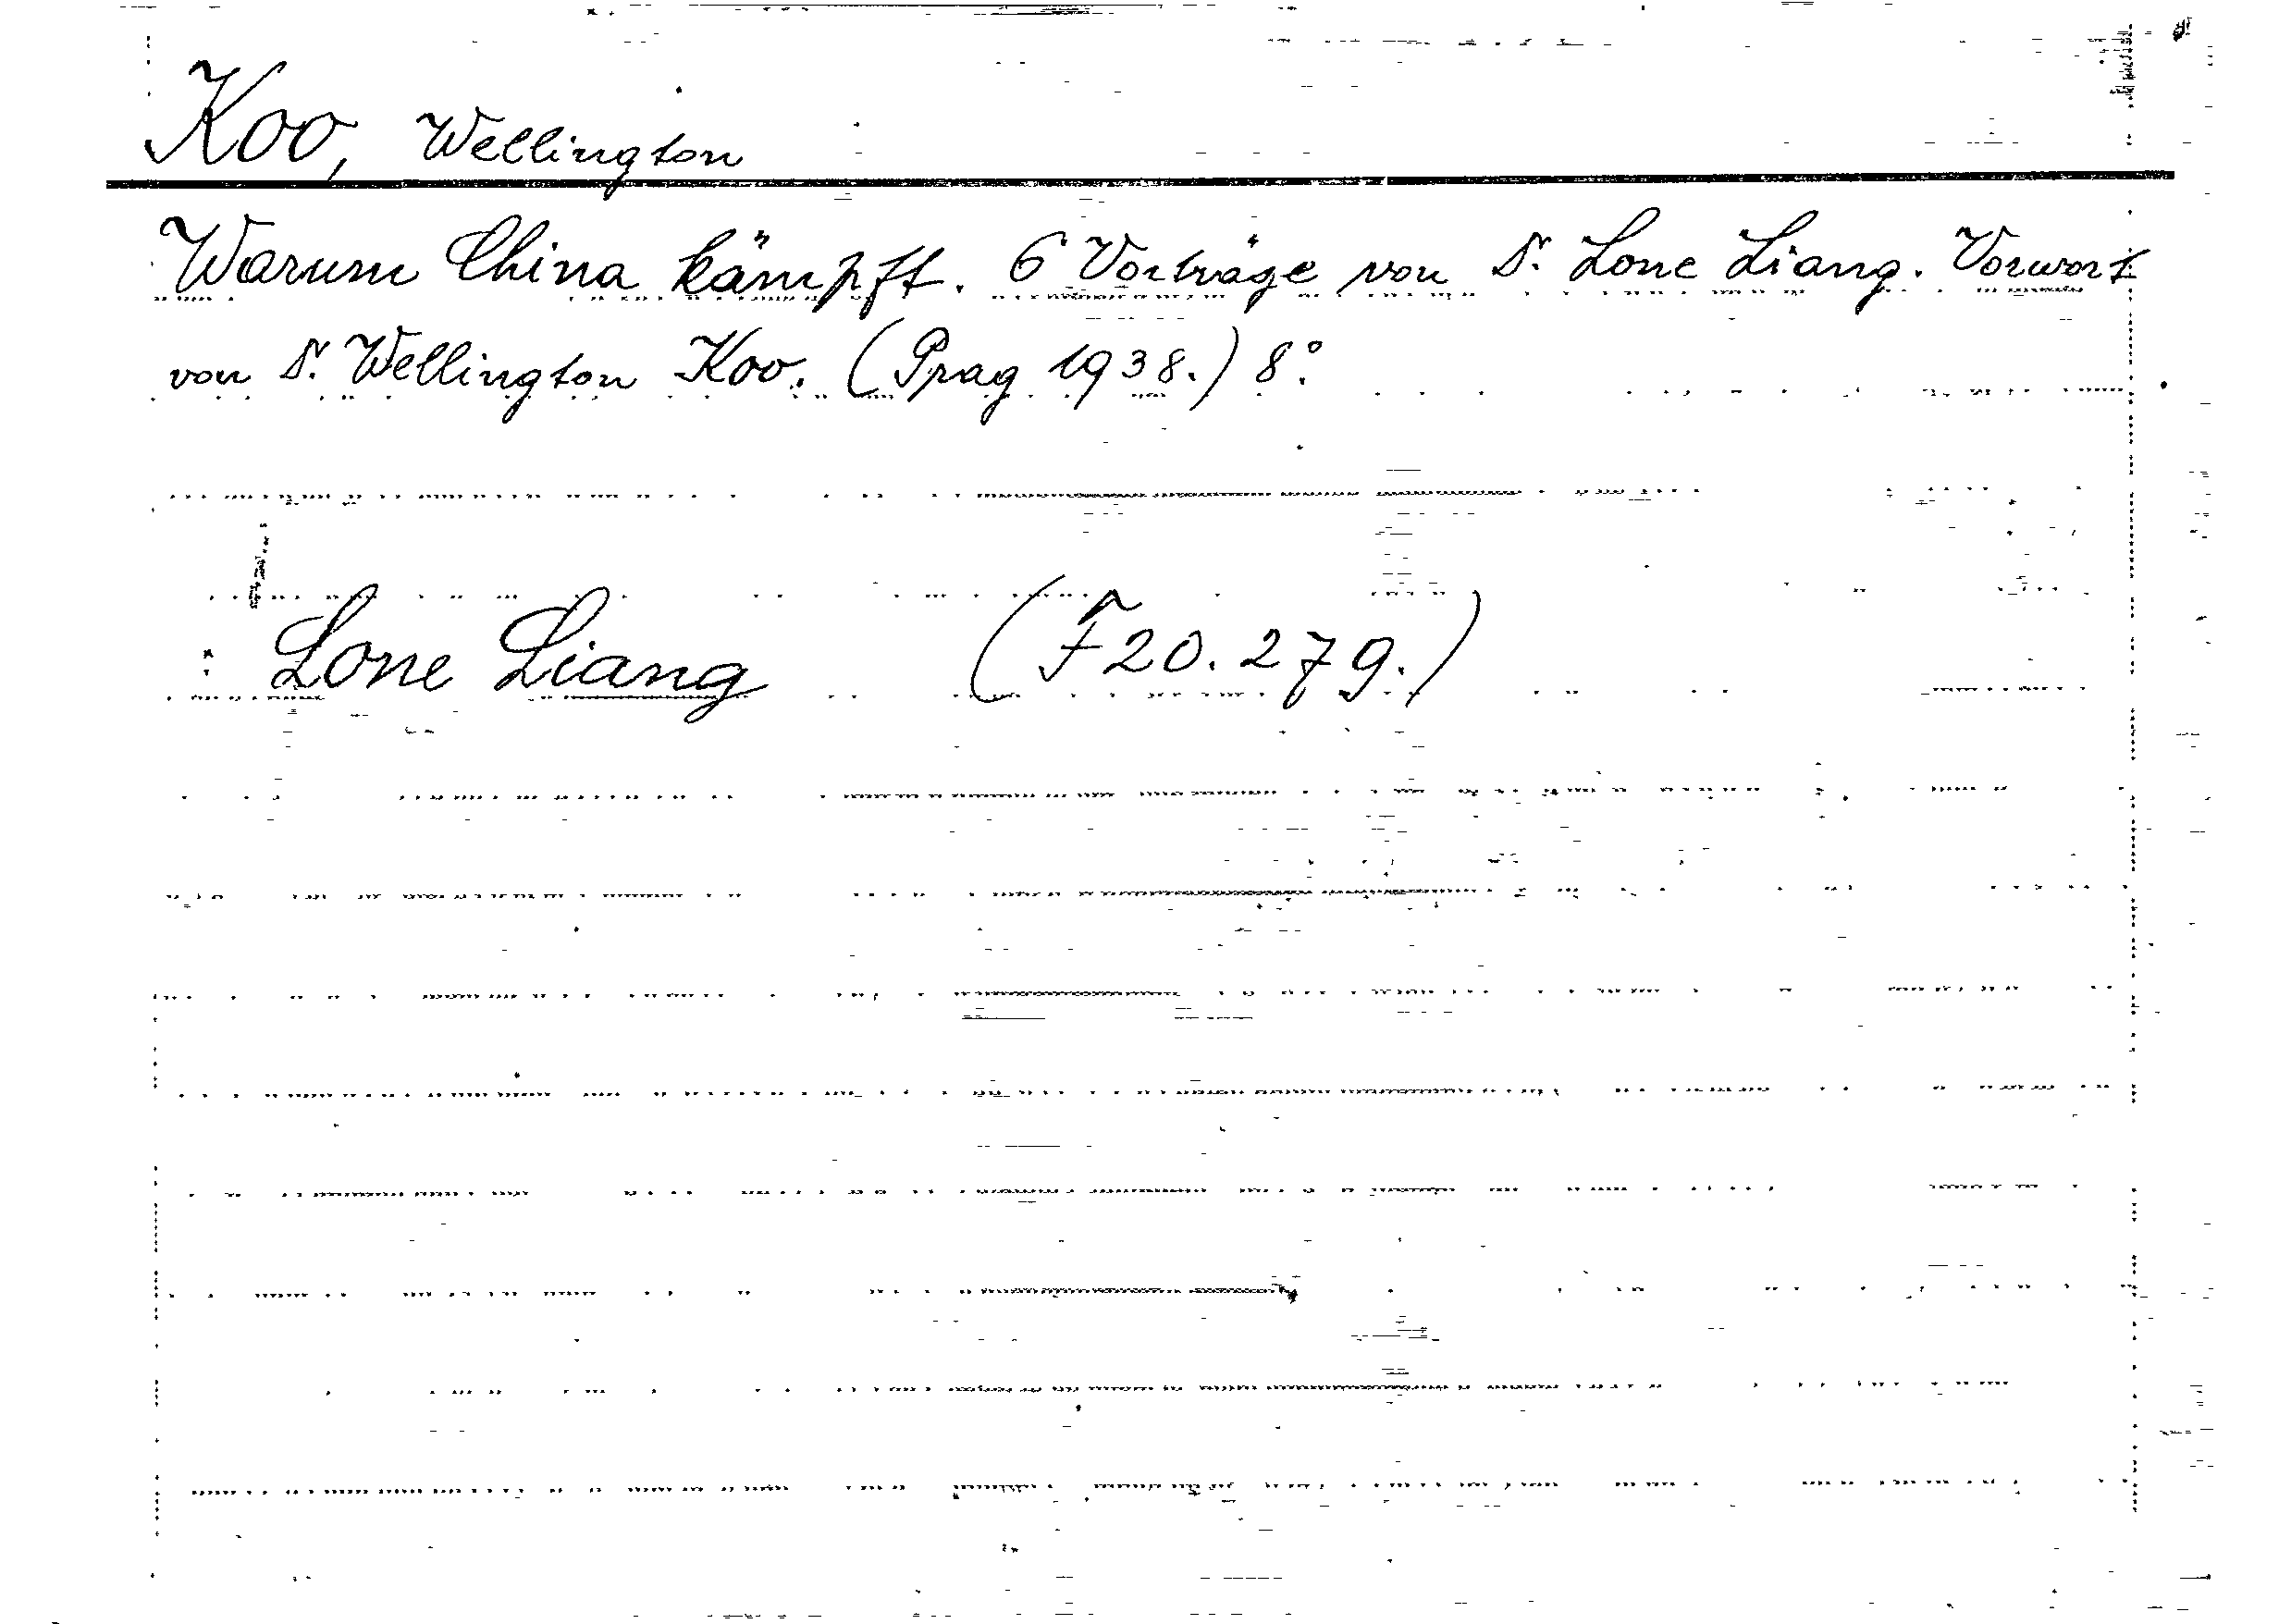 Koo, Wellington
Warum China kämpft. 6 Vorträge von Dr. Lone Liang. Vorwort
von Dr. Wellington Koo. (Prag 1938.) 8°.
: Lone Liang (F 20.279.)